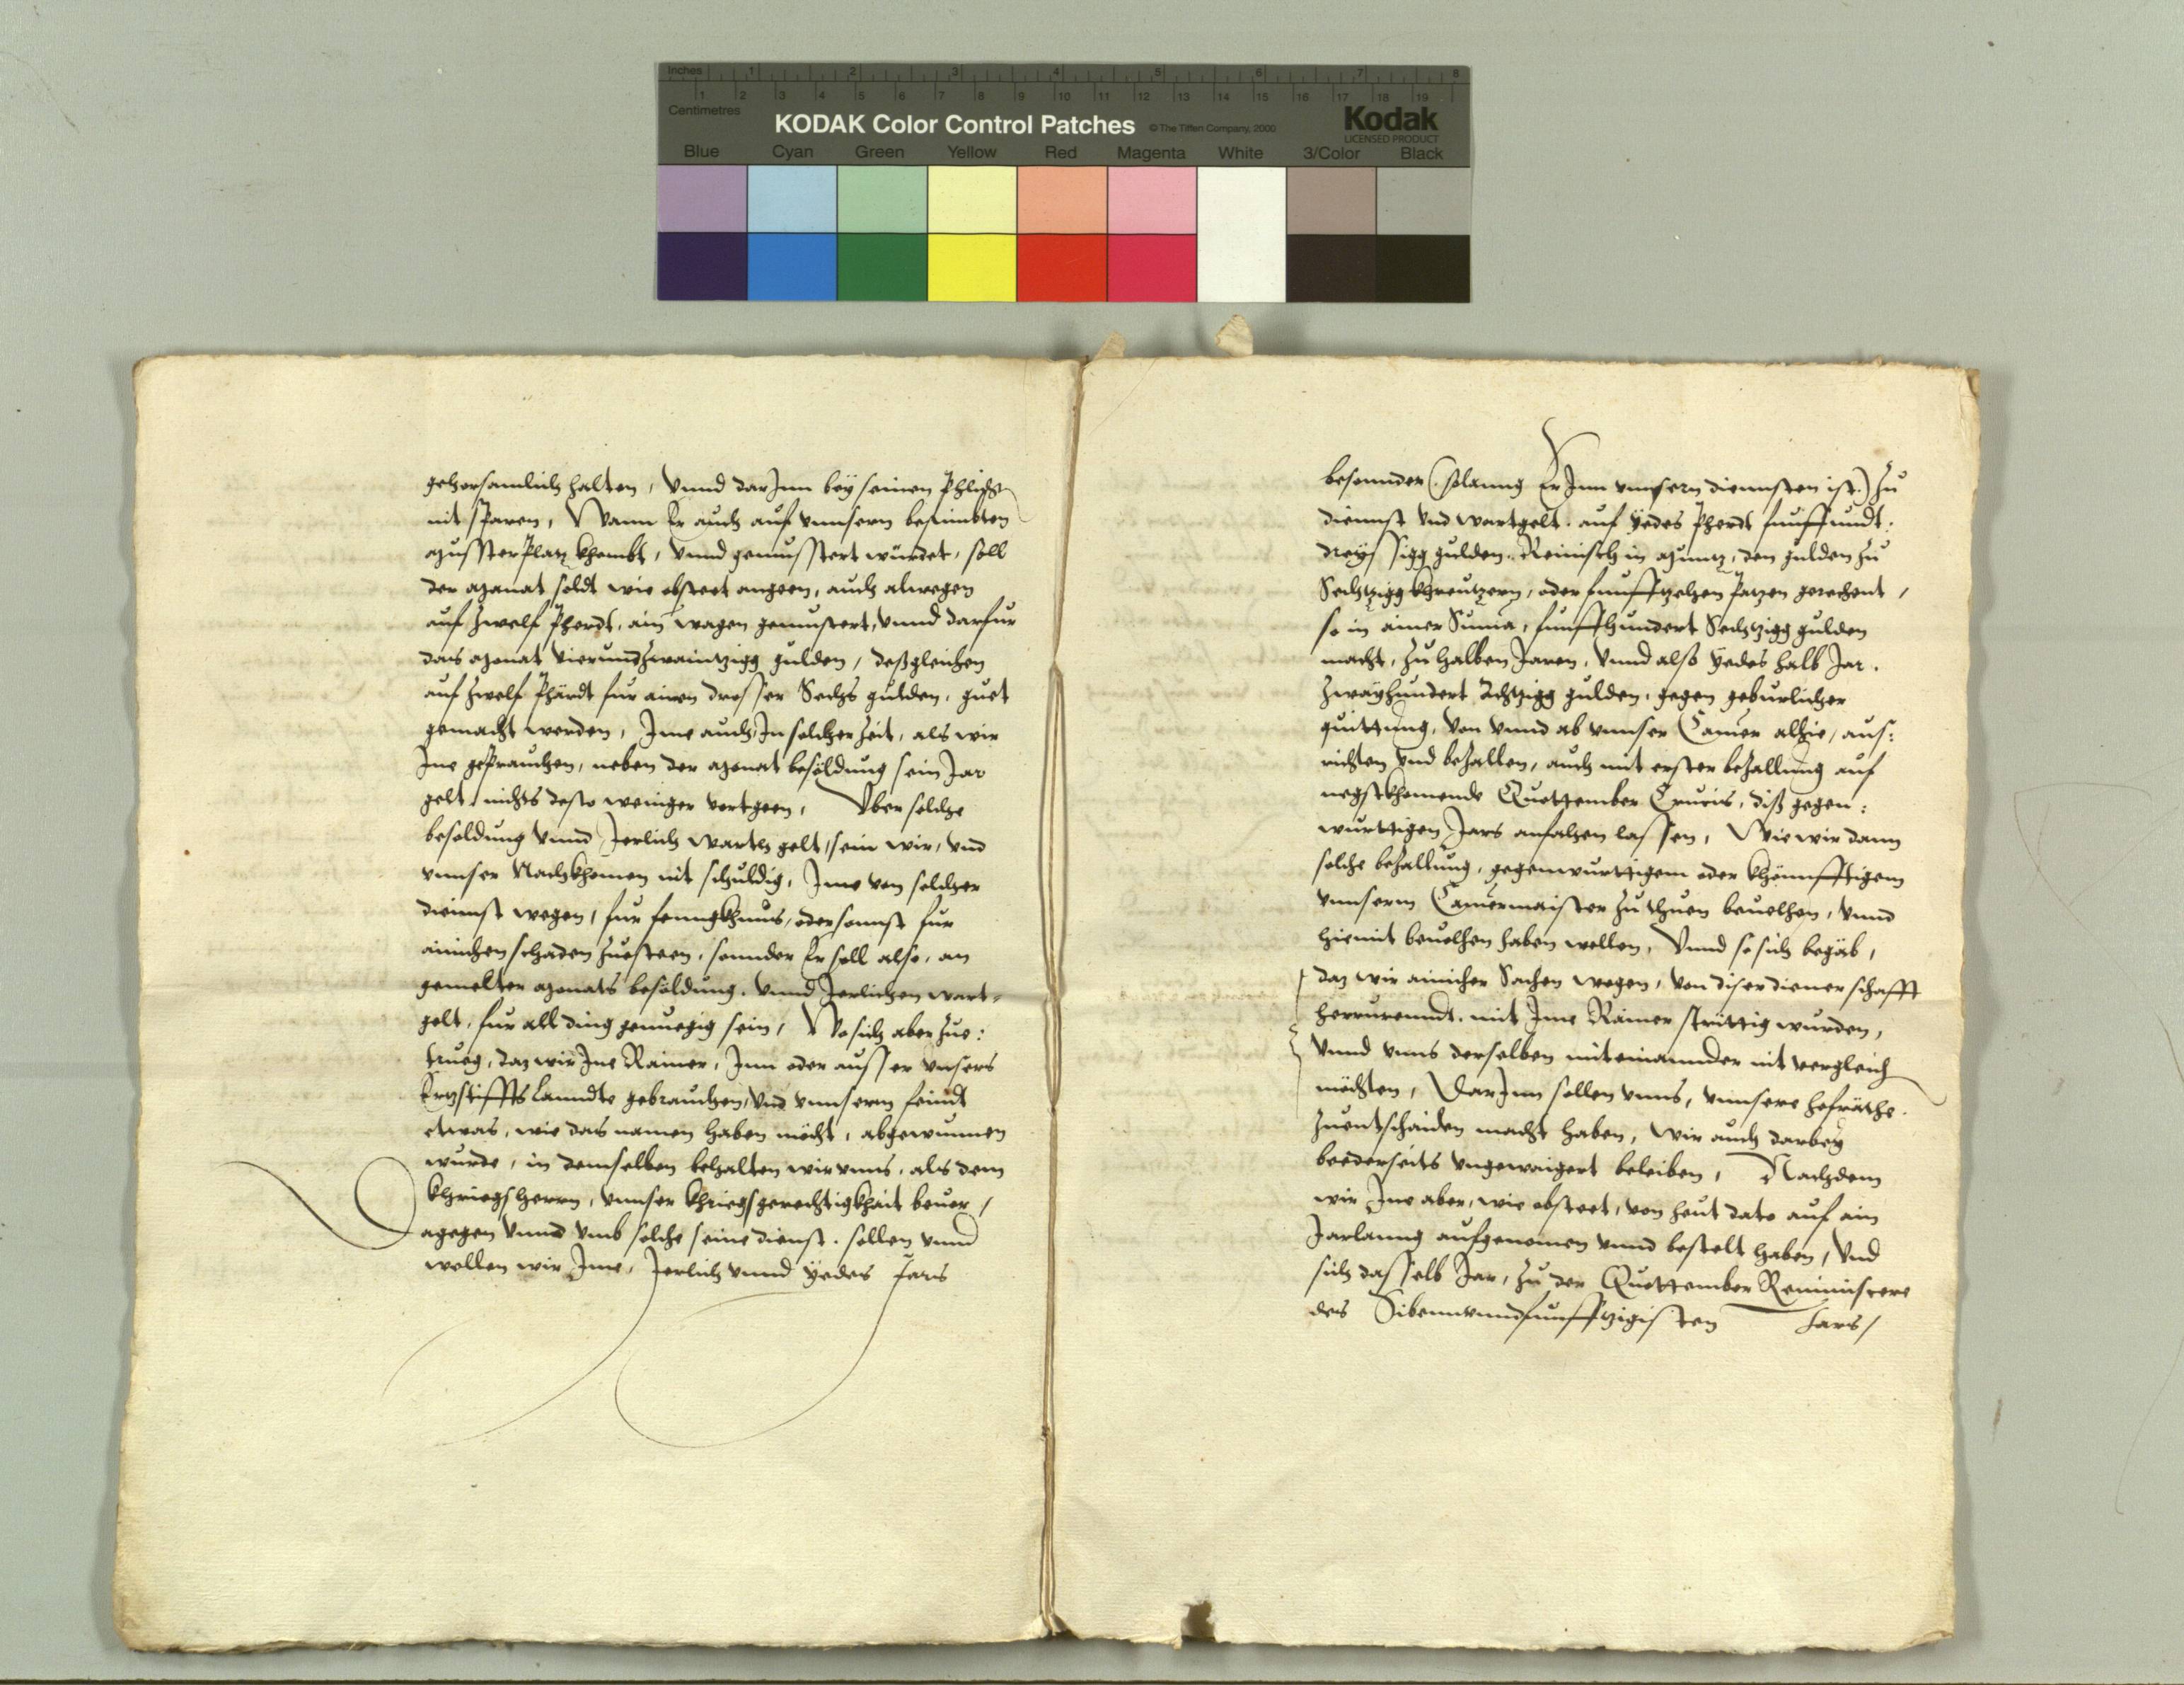 Inches 1 2 3 4 5 6 7 8
1 2 3 4 5 6 7 8 9 10 11 12 13 14 15 16 17 18 19
Centimetres
KODAK Color Control Patches © The Tiffen Company, 2000
Kodak
LICENSED PRODUCT
Blue Cyan Green Yellow Red Magenta White 3/Color Black
gehorsamlich halten, Vnnd darJnn bey seinen Phlichten
nit sparen, Wann Er auch auf vnnsern bestimbten
MussterPlatz khombt, vnnd gemusstert würdet, soll
der Monat soldt wie obsteet angeen, auch alwegen
auf zwelf Pherdt, ain wagen gemustert, vnnd darfur
das Monat vierundzwaintzigg gulden, deßgleichen
auf zwelf Phärdt für ainen drosser Sechs gulden, guet
gemacht werden, Jme auch, Jn solcher Zeit, als wir
Jne geprauchen, neben der Monat besöldung sein Jar
gelt, nichts desto weniger vortgeen, Vber solche
besoldung vnnd Jerlich warth gelt, sein wir, vnd
vnnser Nachkhomen nit schuldig, Jme von solcher
diennst wegen, fur fenngkhnus, oder sonnst fur
ainichen schaden zusteen, sonnder Er soll also, an
gemelter Monats besöldung, vnnd Jerlichen wart-
gelt, fur all ding genuegig sein, Wo sich aber zue:
trueg, daz wir Jne Rainer, Jnn oder ausser vnsers
Ertzstiffts Lanndte gebrauchen, vnd vnnserm feindt
etwas, wie das namen haben möcht, abgewunnen
wurde, in demselben behalten wir vnns, als dem
khriegsherrn, vnnser khriegsgerechtigkhait beuor,
Dagegen vnnd vmb solche seine dienst, sollen vnnd
wellen wir Jme, Jerlich vnnd Yedes Jars
besonnder (solanng Er Jnn vnnsern diennsten ist) zu
diennst vnd wartgelt, auf Yedes Pherdt funffundt:
dreyssigg gulden, Reinisch in Muntz, den gulden zu
Sechtzigg khreutzern, oder funfftzehen Patzen gerechent,
so in ainer Suma, funffhundert Sechtzigg gulden
macht, zu halben Jaren, Vnnd also Yedes halb Jar,
zwayhundert Achtzigg gulden, gegen geburlicher
quittung, von vnnd ab vnnser Camer alhie, aus:
richten vnd bezallen, auch mit erster bezallung auf
negstkhomende Quottember Crucis, diß gegen:
wurttigen Jars anfahen lassen, Wie wir dann
solche bezallung, gegenwurttigem oder khönnfftigem
vnnserm Camermaister zuthuen beuelhen, vnnd
hiemit beuolhen haben wellen, Vnnd so sich begäb,
daz wir ainicher Sachen wegen, von diser dienerschafft
herrurenndt, mit Jme Rainer strittig wurden,
Vnnd vnns derselben miteinannder nit vergleichen
möchten, DarJnn sollen vnns, vnnsere hofräthe,
zuentschaiden macht haben, wir auch darbey
beederseits vngewaigert beleiben, Nachdem
wir Jne aber, wie obsteet, von heut dato auf ain
Jarlanng aufgenomen vnnd bestelt haben, Vnd
sich dasselb Jar, zu der Quottember Reminiscere
des Sibenvnndfunfftzigisten Jars,